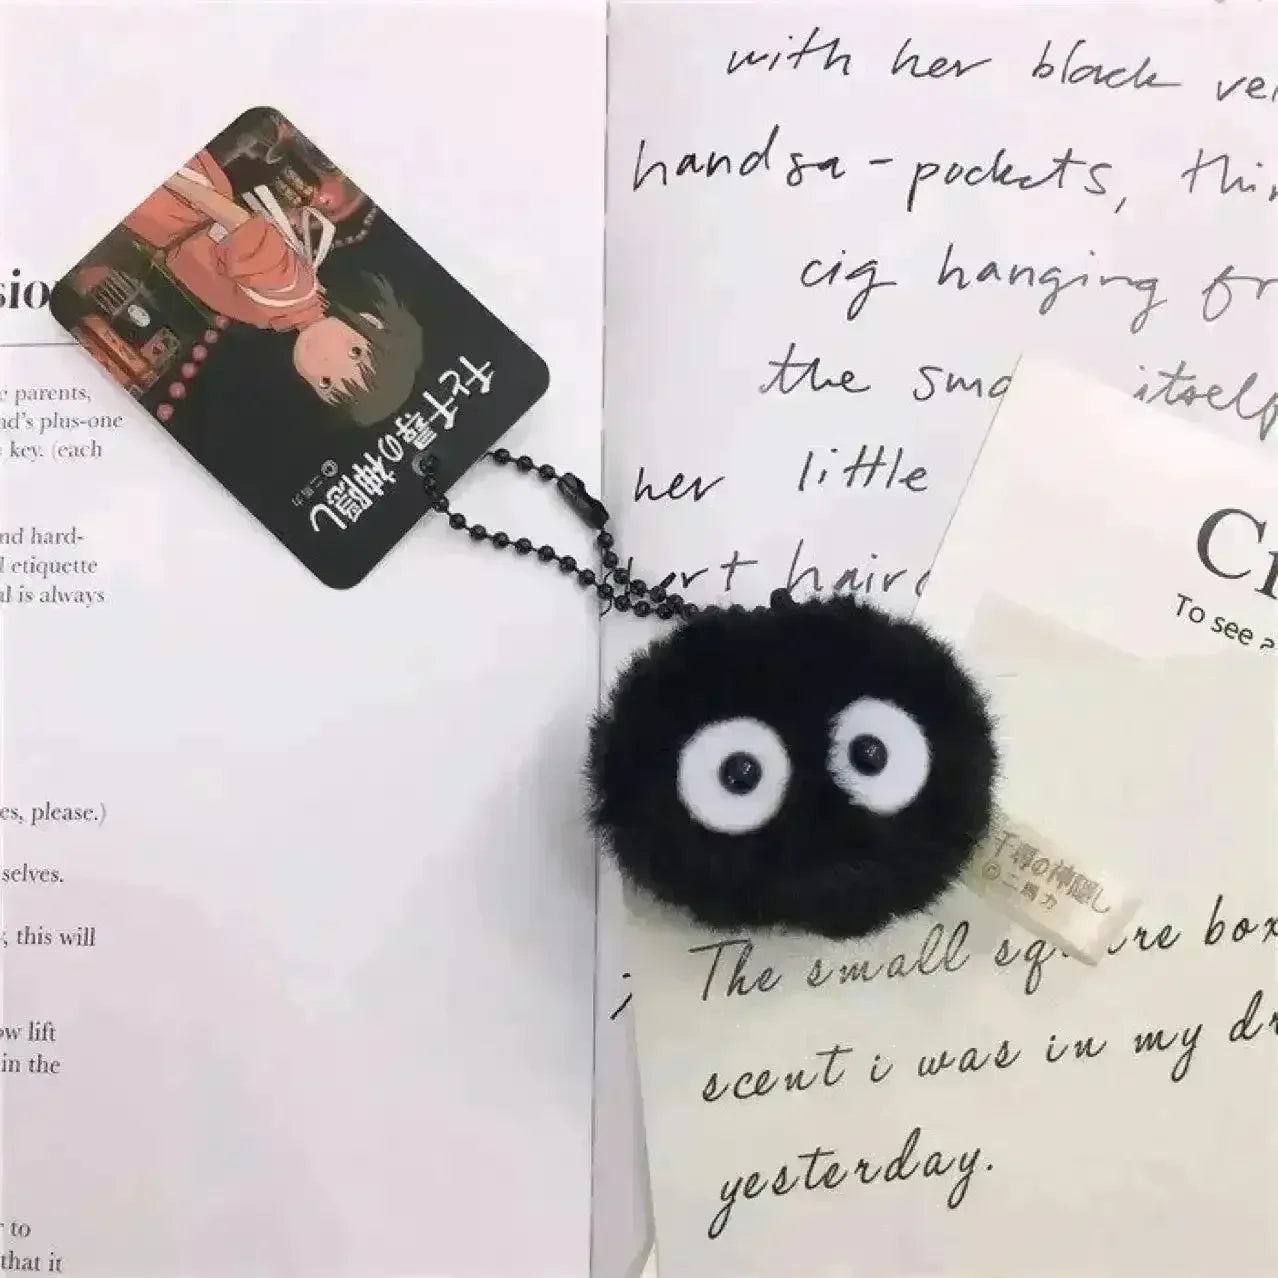 sio
parents,
d's plus-one
key. (each
nd hard-
etiquette
l is always
es, please.)
selves.
, this will
ow lift
in the
to
that it
千と千尋の神隠し
©二馬力
with her black ve
handsa-pockets, thin
cig hanging fr
the smo itself
her little
hort hairc
;
To see a
千尋の神隠し
©二馬力
The small square box
scent i was in my dr
yesterday.